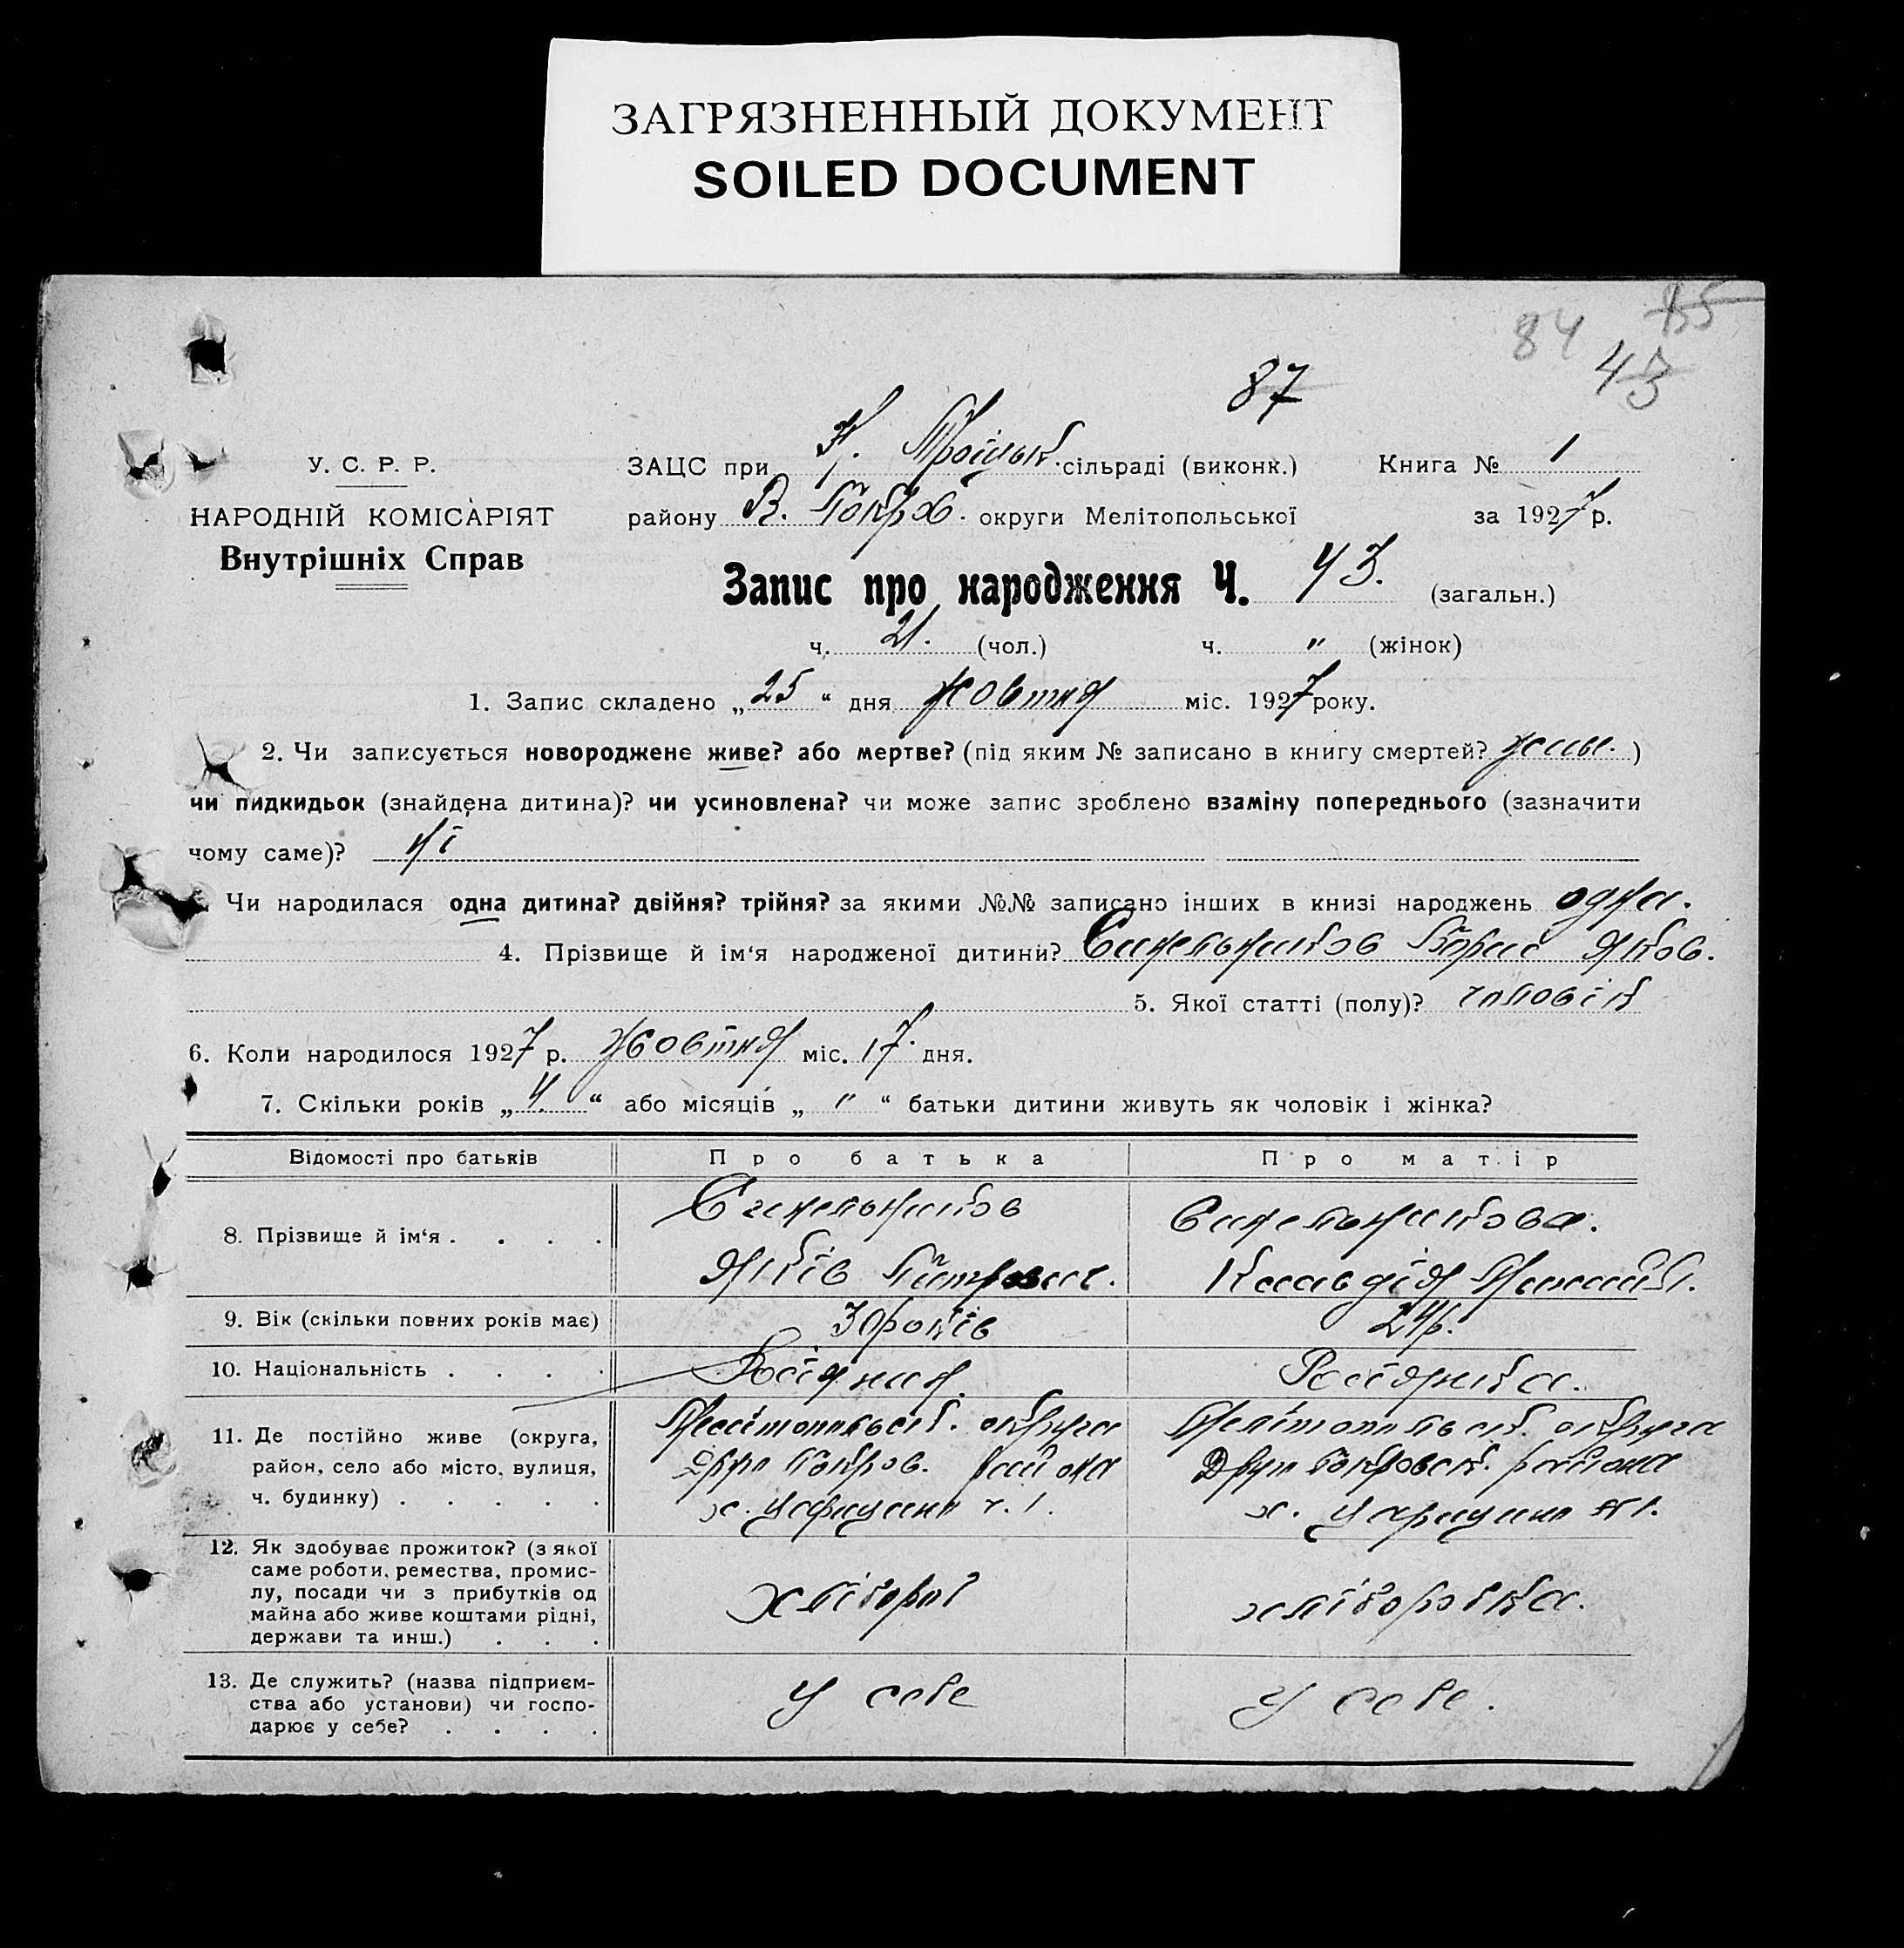 ЗАГРЯЗНЕННЫЙ ДОКУМЕНТ
SOILED DOCUMENT
84 85
43
87
У. С. Р. Р.
НАРОДНІЙ КОМІСАРІЯТ
Внутрішніх Справ
ЗАЦС при Н. Троіцьк. сільраді (виконк.) Книга № 1
району В. Покров. округи Мелітопольської за 1927 р.
Запис про народження Ч. 43. (загальн.)
ч. 21. (чол.) ч. " (жінок)
1. Запис складено „25“ дня жовтня міс. 1927 року.
2. Чи записується новороджене живе? або мертве? (під яким № записано в книгу смертей? )
чи пидкидьок (знайдена дитина)? чи усиновлена? чи може запис зроблено взаміну попереднього (зазначити
чому саме)? ні
Чи народилася одна дитина? двійня? трійня? за якими №№ записано інших в книзі народжень одна.
4. Прізвище й ім‘я народженої дитини? Синельников Борис Яков.
5. Якої статті (полу)? чоловік
6. Коли народилося 1927 р. жовтня міс. 17 дня.
7. Скільки років „4.“ або місяців „ " “ батьки дитини живуть як чоловік і жінка?
Відомості про батьків Про батька Про матір
8. Прізвище й ім‘я . . . . Синельников Синельникова.
Яків Петрович. Клавдія
9. Вік (скільки повних років має) 30 років 24 р.
10. Національність . . . .
11. Де постійно живе (округа, район, село або місто, вулиця, ч. будинку) . . . . .
Мелітопільськ. округа Мелітопільськ. округа
Друг Покров. района Друг Покровськ. района
х. Царицино ч. 1. х. Царицино № 1.
12. Як здобуває прожиток? (з якої
саме роботи, ремества, промис-
лу, посади чи з прибутків од
майна або живе коштами рідні,
держави та инш.) . . .
хлібороб хлібаробка.
13. Де служить? (назва підприєм-
ства або установи) чи госпо-
дарює у себе? . . . .
у себе у себе.